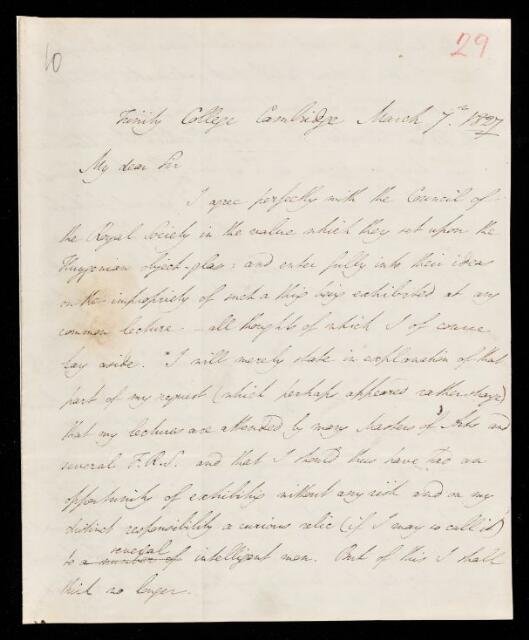 10
29
Trinity College Cambridge March 7th. 1827
My dear Sir
I agree perfectly with the Council of
the Royal Society in the value which they set upon the
Huygenian object-glass: and enter fully into their ideas
on the impropriety of such a thing being exhibited at any
common lecture — all thoughts of which I of course
lay aside. I will merely state in explanation of that
part of my request (which perhaps appeared rather strange)
that my lectures are attended by many Masters of Arts and
several F.R.S. and that I should thus have had an
opportunity of exhibiting without any risk and on my
distinct responsibility a curious relic (if I may so call it)
several
to a number of intelligent men. But of this I shall
think no longer.